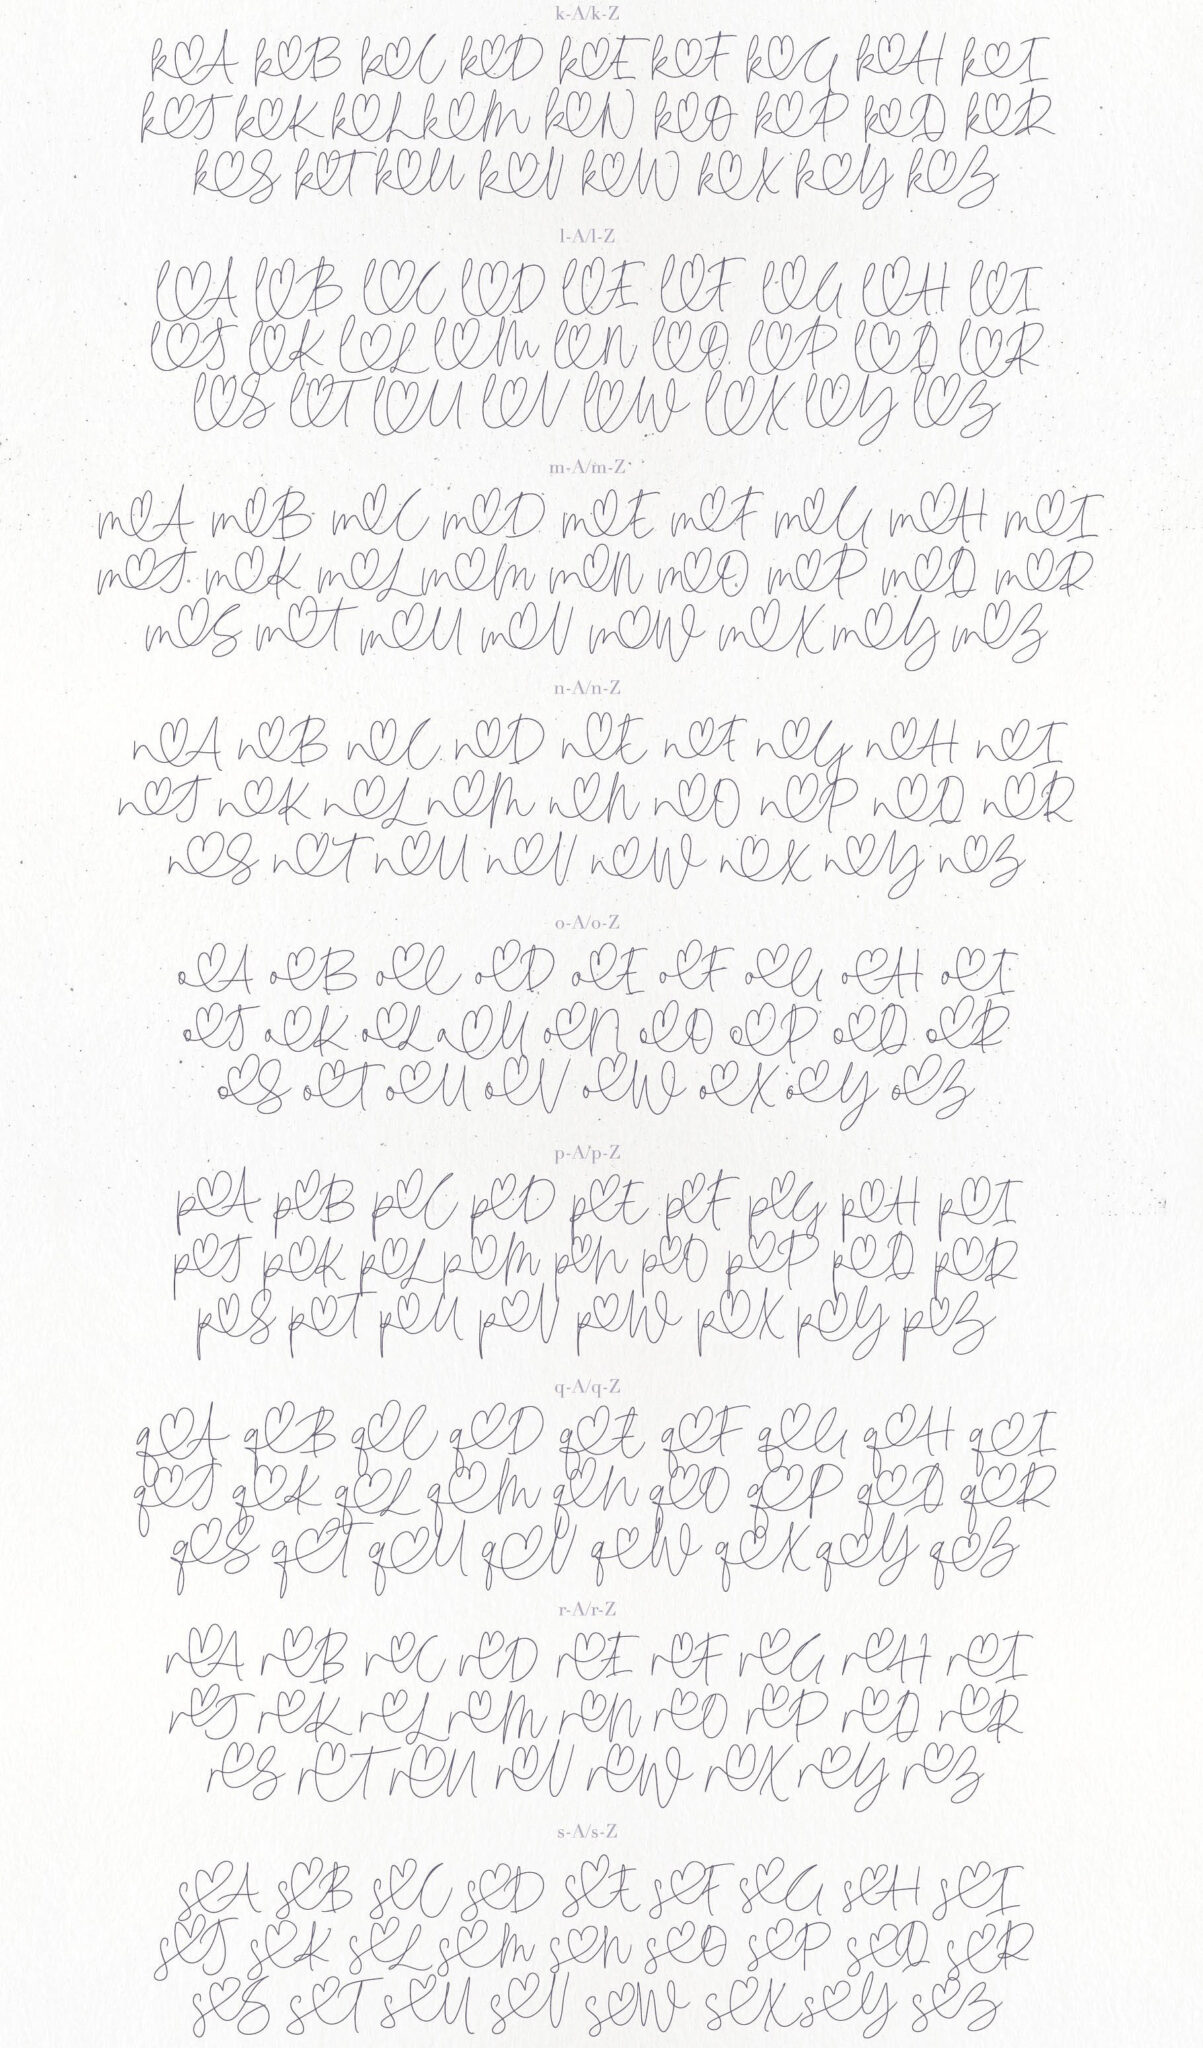 k-A/k-Z
k♡A k♡B k♡C k♡D k♡E k♡F k♡G k♡H k♡I
k♡J k♡K k♡L k♡M k♡N k♡O k♡P k♡Q k♡R
k♡S k♡T k♡U k♡V k♡W k♡X k♡Y k♡Z
l-A/l-Z
l♡A l♡B l♡C l♡D l♡E l♡F l♡G l♡H l♡I
l♡J l♡K l♡L l♡M l♡N l♡O l♡P l♡Q l♡R
l♡S l♡T l♡U l♡V l♡W l♡X l♡Y l♡Z
m-A/m-Z
m♡A m♡B m♡C m♡D m♡E m♡F m♡G m♡H m♡I
m♡J m♡K m♡L m♡M m♡N m♡O m♡P m♡Q m♡R
m♡S m♡T m♡U m♡V m♡W m♡X m♡Y m♡Z
n-A/n-Z
n♡A n♡B n♡C n♡D n♡E n♡F n♡G n♡H n♡I
n♡J n♡K n♡L n♡M n♡N n♡O n♡P n♡Q n♡R
n♡S n♡T n♡U n♡V n♡W n♡X n♡Y n♡Z
o-A/o-Z
o♡A o♡B o♡C o♡D o♡E o♡F o♡G o♡H o♡I
o♡J o♡K o♡L o♡M o♡N o♡O o♡P o♡Q o♡R
o♡S o♡T o♡U o♡V o♡W o♡X o♡Y o♡Z
p-A/p-Z
p♡A p♡B p♡C p♡D p♡E p♡F p♡G p♡H p♡I
p♡J p♡K p♡L p♡M p♡N p♡O p♡P p♡Q p♡R
p♡S p♡T p♡U p♡V p♡W p♡X p♡Y p♡Z
q-A/q-Z
q♡A q♡B q♡C q♡D q♡E q♡F q♡G q♡H q♡I
q♡J q♡K q♡L q♡M q♡N q♡O q♡P q♡Q q♡R
q♡S q♡T q♡U q♡V q♡W q♡X q♡Y q♡Z
r-A/r-Z
r♡A r♡B r♡C r♡D r♡E r♡F r♡G r♡H r♡I
r♡J r♡K r♡L r♡M r♡N r♡O r♡P r♡Q r♡R
r♡S r♡T r♡U r♡V r♡W r♡X r♡Y r♡Z
s-A/s-Z
s♡A s♡B s♡C s♡D s♡E s♡F s♡G s♡H s♡I
s♡J s♡K s♡L s♡M s♡N s♡O s♡P s♡Q s♡R
s♡S s♡T s♡U s♡V s♡W s♡X s♡Y s♡Z